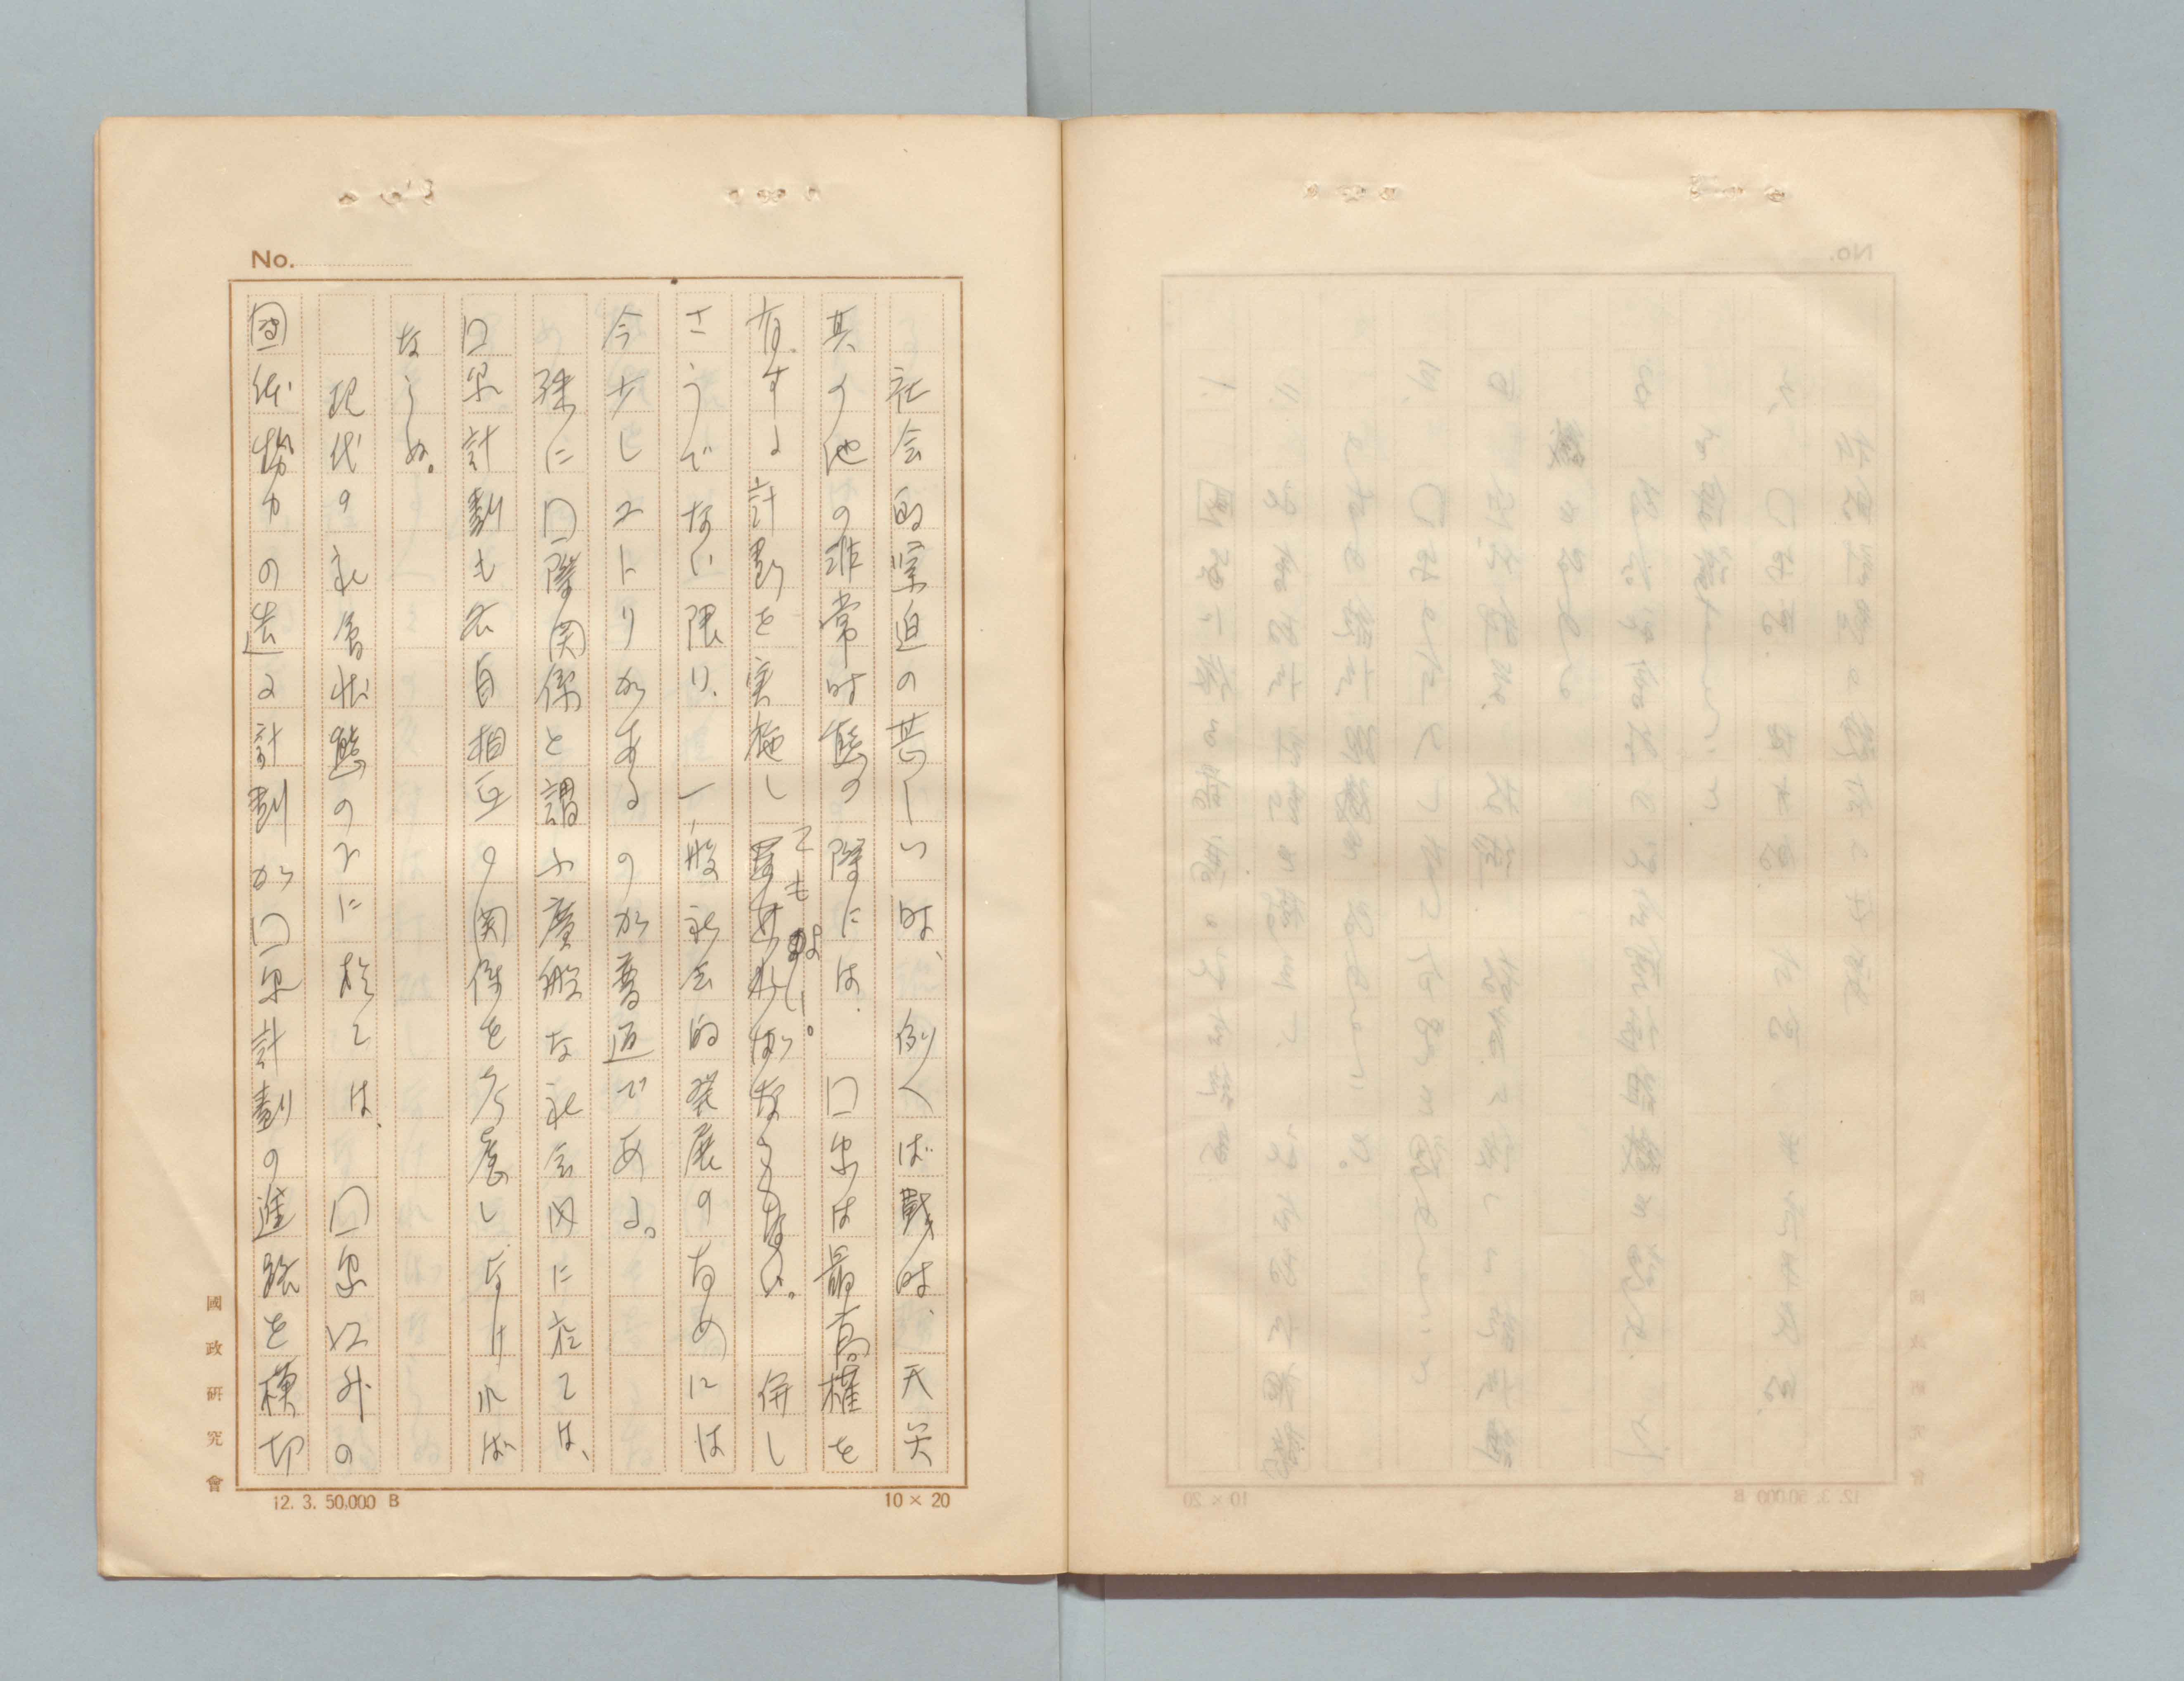 No.
社会的緊迫の甚しい時、例へば戰時、天災
其の他の非常時態の際には、国家は最高權を
有する計劃を実施してもよい。併し
さうでない限り、一般社会的発展のためには
今少しユトリがあるのが普通である。
殊に国際関係と謂ふ廣般な社会内に於ては、
国家計劃も亦自相互の関係を考慮しなければ
ならぬ。
現代の社会状態の下に於ては、国家以外の
団体勢力の造る計劃が国家計劃の進路を横切
國政硏究會
12. 3. 50,000 B
10 × 20